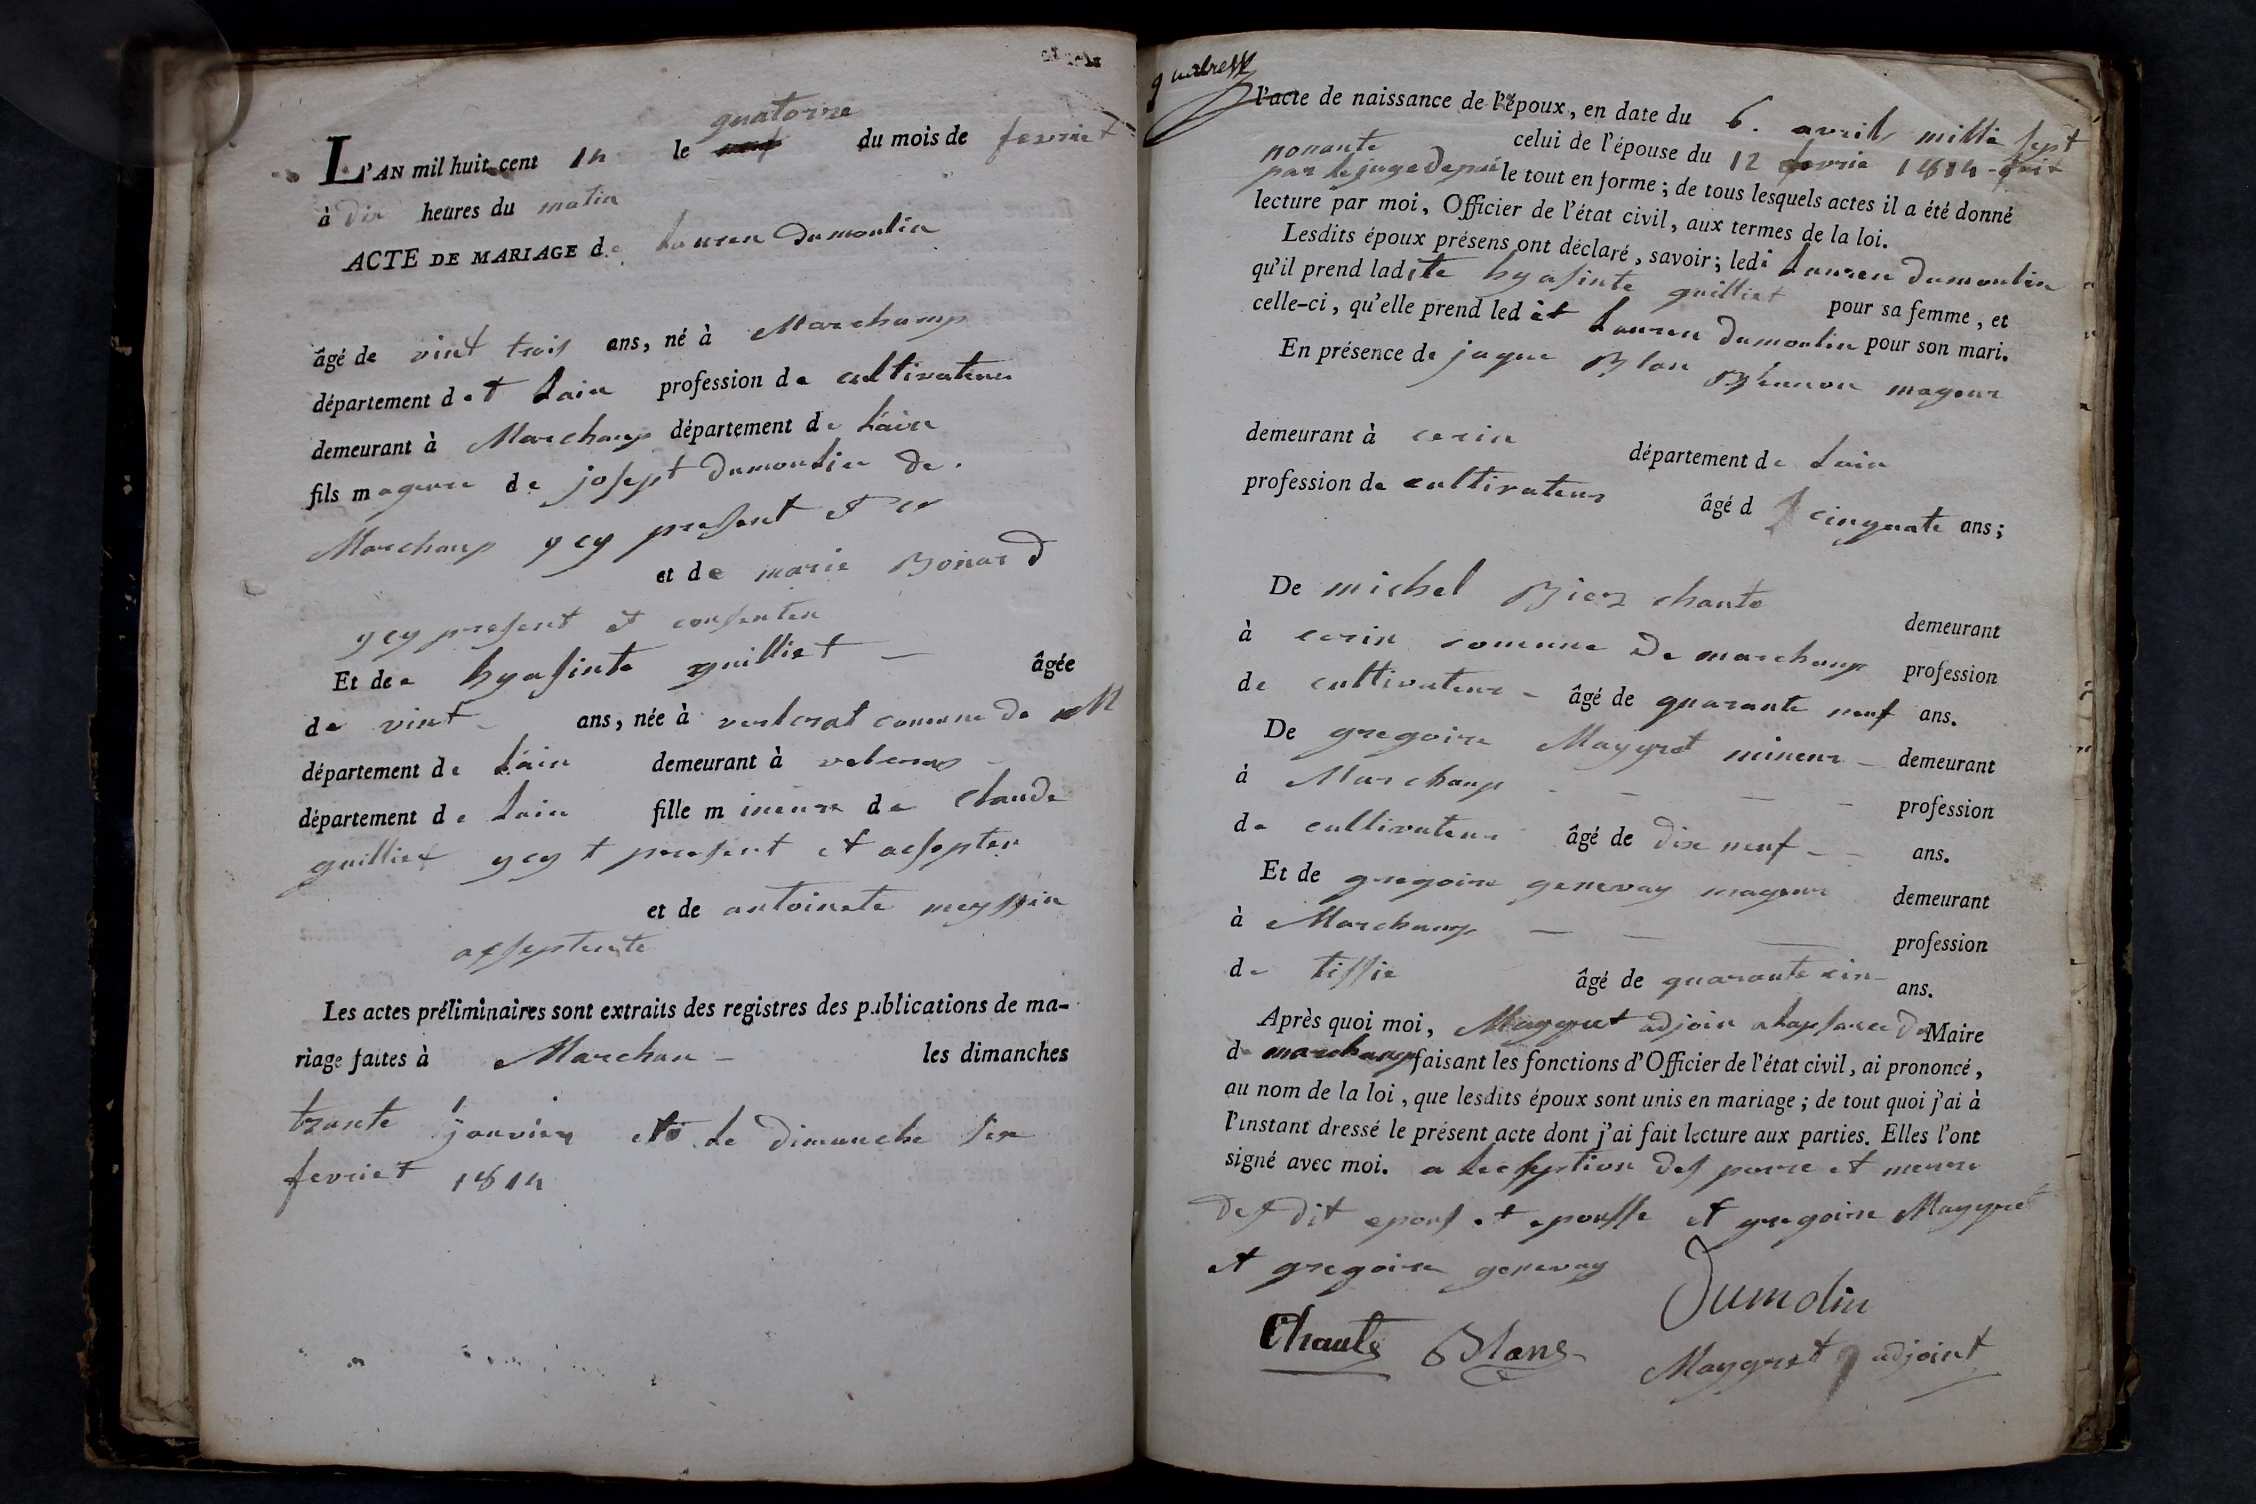 quatorze
L'AN mil huit cent 14 le neuf du mois de fevriet
à dix heures du matin
ACTE DE MARIAGE de Lauren dumoulin
âgé de vint trois ans, né à Marchamp
département det Lain profession de cultivateur
demeurant à Marchamp département de Lain
fils mageure de josept dumoulin de
Marchamp y cy present et
et de marie Bonard
y cy present et consenten
Et de hyasinte guilliet âgée
de vint ans, née à comune de M
département de Lain demeurant à
département de Lain fille mineure de Claude
guilliet y cy present et aesepten
et de antoinete meyssin
Les actes préliminaires sont extraits des registres des publications de ma-
riage faites à Marchan les dimanches
trante janvier et le dimanche six
fevriet 1814
l'acte de naissance de l'époux, en date du 6. avril mille sept
nonante celui de l'épouse du 12 fevrie 1814
par le juge depai le tout en forme; de tous lesquels actes il a été donné
lecture par moi, Officier de l'état civil, aux termes de la loi.
Lesdits époux présens ont déclaré, savoir; ledi Lauren dumoulin
qu'il prend ladite hyasinte guilliet pour sa femme, et
celle-ci, qu'elle prend led it Lauren dumoulin pour son mari.
En présence de jaque Blan mageur
demeurant à cerin département de Lain
profession de cultivateur âgé d cinquate ans;
De michel chante demeurant
à cerin comune de marchamp profession
de cultivateur âgé de quarante neuf ans.
De gregoire Maygret mineur demeurant
à Marchamp profession
de cultivateur âgé de dix neuf ans.
Et de gregoire genevay mageur demeurant
à Marchamp profession
de tissie âgé de quarante cin ans.
Après quoi moi, Maygret adjoin Maire
de marchamp faisant les fonctions d'Officier de l'état civil, ai prononcé,
au nom de la loi, que lesdits époux sont unis en mariage; de tout quoi j'ai à
l'instant dressé le présent acte dont j'ai fait lecture aux parties. Elles l'ont
signé avec moi. a des
des dit epous et epousse et gregoire Maygret
et gregoire genevay
Dumolin
Chante Blanc
Maygret adjoint